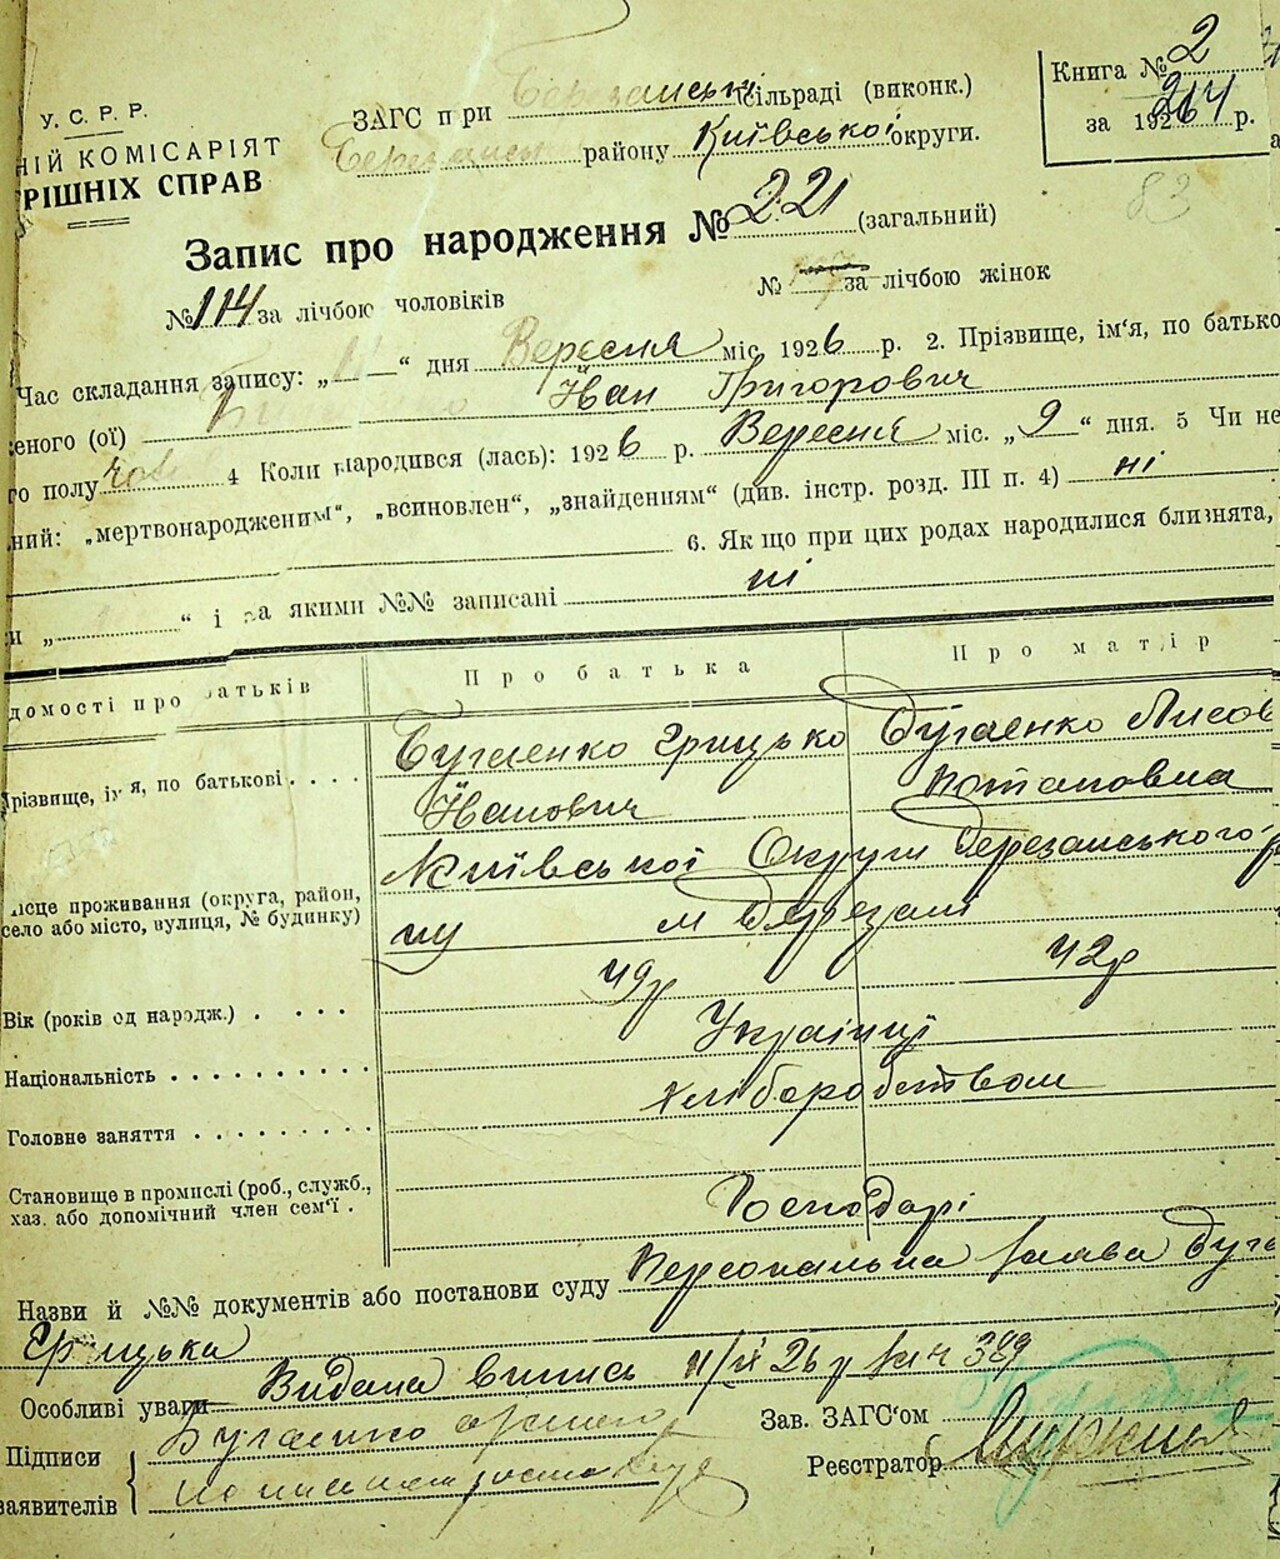 Книга № 2
за 192 264 р.
83
У. С. Р. Р.
НІЙ КОМІСАРІЯТ
РІШНІХ СПРАВ
ЗАГС при Березанській сільраді (виконк.)
Березанськ району Київської округи.
Запис про народження № 221 (загальний)
№ 114 за лічбою чоловіків
№ за лічбою жінок
Час складання запису: „ “ дня Вересня міс. 1926 р. 2. Прізвище, ім‘я, по батько
еного (ої) Йван Григорович
го полу чов 4 Коли народився (лась): 1926 р. Вересня міс. „9“ дня. 5 Чи не
ний: „мертвонародженим“, „всиновлен“, „знайденням“ (див. інстр. розд. III п. 4) ні
6. Якщо при цих родах народилися близнята,
и „ “ і за якими №№ записані ні
домості про батьків
Про батька
Про матір
Прізвище, ім‘я, по батькові
Бугаенко Грицько
Йванович
Бугаенко Лисов
Потаповна
місце проживання (округа, район,
село або місто, вулиця, № будинку)
Київської Округи Березанського р
ну м Березані
Вік (років од народж.)
49р
42р
Національність
Українці
Головне заняття
хліборобством
Становище в промислі (роб., служб.,
хаз. або допомічний член сем‘ї .
Господарі
Назви й №№ документів або постанови суду Персональна заява Буга
Грицька
Особливі уваги Видана випись 11/IX 26 р за ч 389
Підписи
заявителів
Бугаенко
Зав. ЗАГС‘ом
Реєстратор